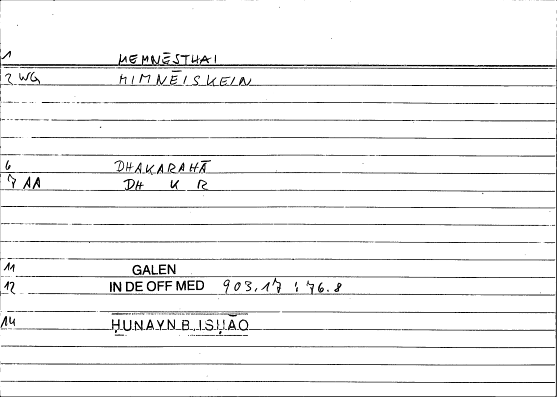 1 MEMNĒSTHAI
2 WG MIMNĒISKEIN
6 DHAKARAHĀ
7 AA DH K R
11 GALEN
12 IN DE OFF MED 903.17 : 76.8
14 ḤUNAYN B. ISḤĀQ